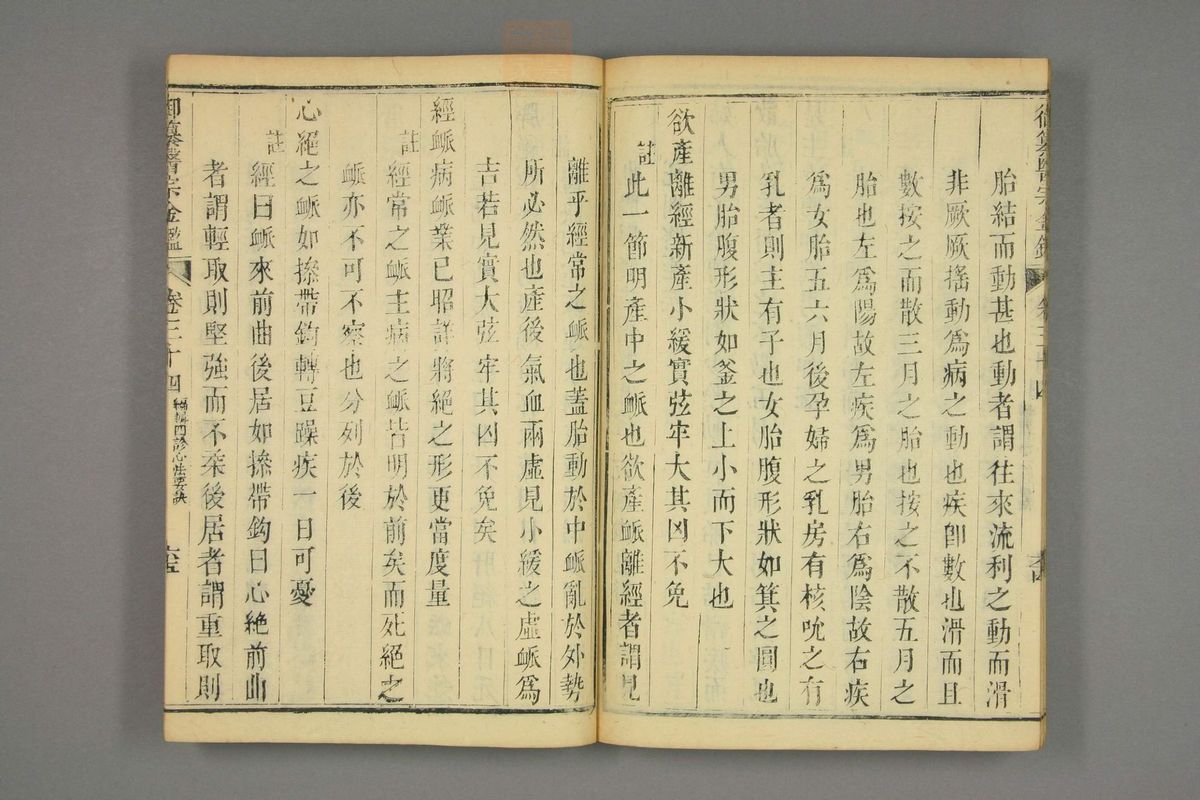 胎結而動甚也動者謂往來流利之動而滑
非厥厥搖動爲病之動也疾卽數也滑而且
數按之而散三月之胎也按之不散五月之
胎也左爲陽故左疾爲男胎右爲陰故右疾
爲女胎五六月後孕婦之乳房有核吮之有
乳者則主有子也女胎腹形狀如箕之圓也
男胎腹形狀如釜之上小而下大也
欲產離經新產小緩實弦牢大其凶不免
註此一節明產中之脈也欲產脈離經者謂見
離乎經常之脈也蓋胎動於中脈亂於外勢
所必然也產後氣血兩虛見小緩之虛脈爲
吉若見實大弦牢其凶不免矣
經脈病脈業已昭詳將絕之形更當度量
註經常之脈主病之脈皆明於前矣而死絕之
脈亦不可不察也分列於後
心絕之脈如操帶鉤轉豆躁疾一日可憂
註經曰脈來前曲後居如操帶鉤曰心絕前曲
者謂輕取則堅強而不柔後居者謂重取則
御纂醫宗金鑑
卷三十四
編輯四診心法要訣